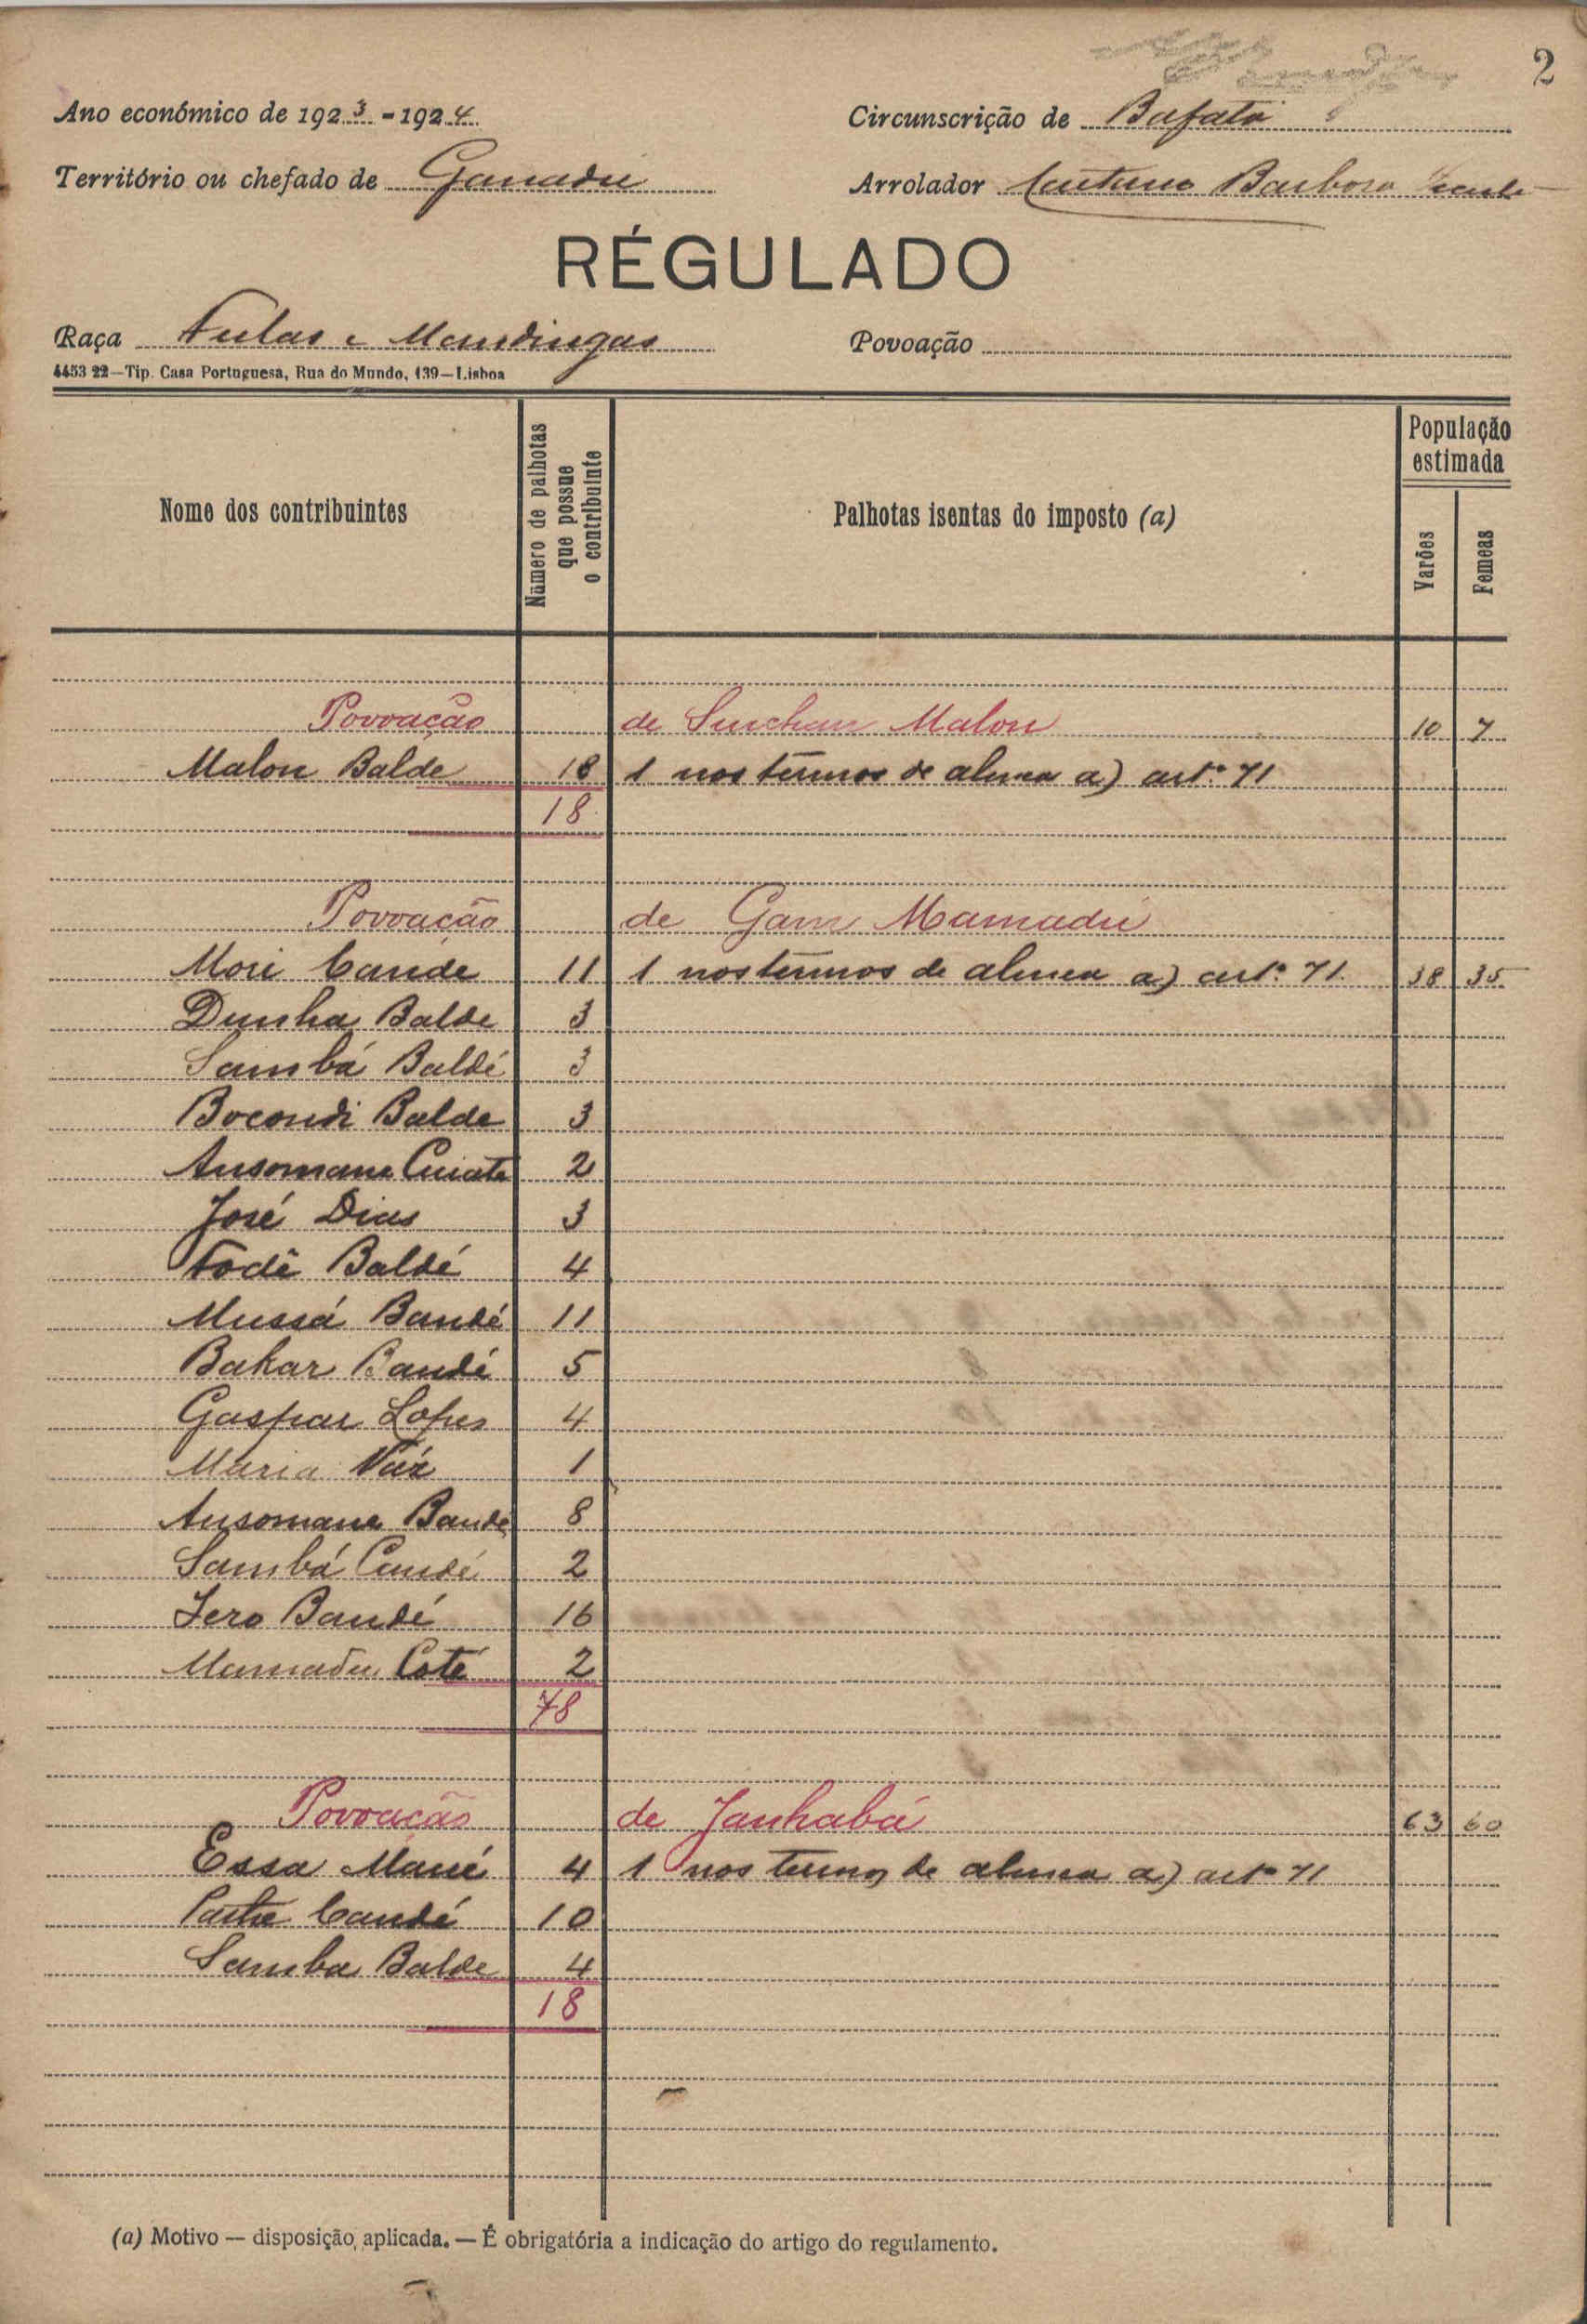 2
Ano económico de 1923-1924
Circunscrição de Bafatá
Território ou chefado de Ganadú
Arrolador Caetano Barbosa
RÉGULADO
Raça Fulas e Mandingas
Povoação
4453 22—Tip. Casa Portuguesa, Rua do Mundo, 139—Lisboa
Nome dos contribuintes
Número de palhotas que possue o contribuinte
Palhotas isentas do imposto (a)
População estimada
Varões
Femeas
Povoação de Sinchan Malon 10 7
Malon Balde 18 1 nos têrmos de alinea a) artº 71
18
Povoação de Gam Mamadú
Mori Cande 11 1 nos têrmos de alinea a) artº 71 38 35
Dunha Balde 3
Sambá Baldé 3
Bocondi Balde 3
Ansomane Cuiate 2
José Dias 3
Fodê Baldé 4
Mussá Bandé 11
Bakar Bandé 5
Gaspar Lopes 4
Maria Váz 1
Ansomane Bande 8
Sambá Candé 2
Iero Bandé 16
Mamadu Coté 2
78
Povoação de Janhabá 63 60
Essa Mané 4 1 nos termos de alinea a) artº 71
Candé 10
Samba Balde 4
18
(a) Motivo — disposição aplicada. — É obrigatória a indicação do artigo do regulamento.